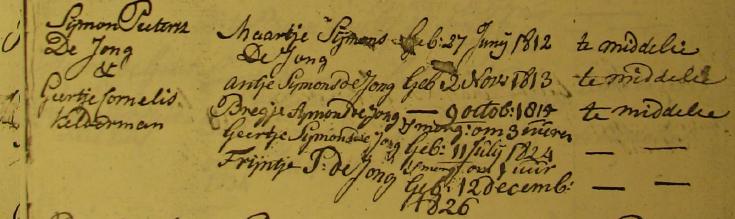 Symon Pieters
De Jong
&
Geertje Cornelis
Kelderman
Maartje Symons Geb: 27 Junij 1812 te middelie
De Jong
antje Symons de Jong Geb 2 Nov: 1813 te middelie
Bregje Symons de Jong — 9 octob: 1814 te middelie
Smorg: om 3 uuren
Geertje Symons de Jong Geb: 11 July 1824 — —
Smorg: om 1 uur
Trijntje P: de Jong Geb: 12 decemb: — —
1826